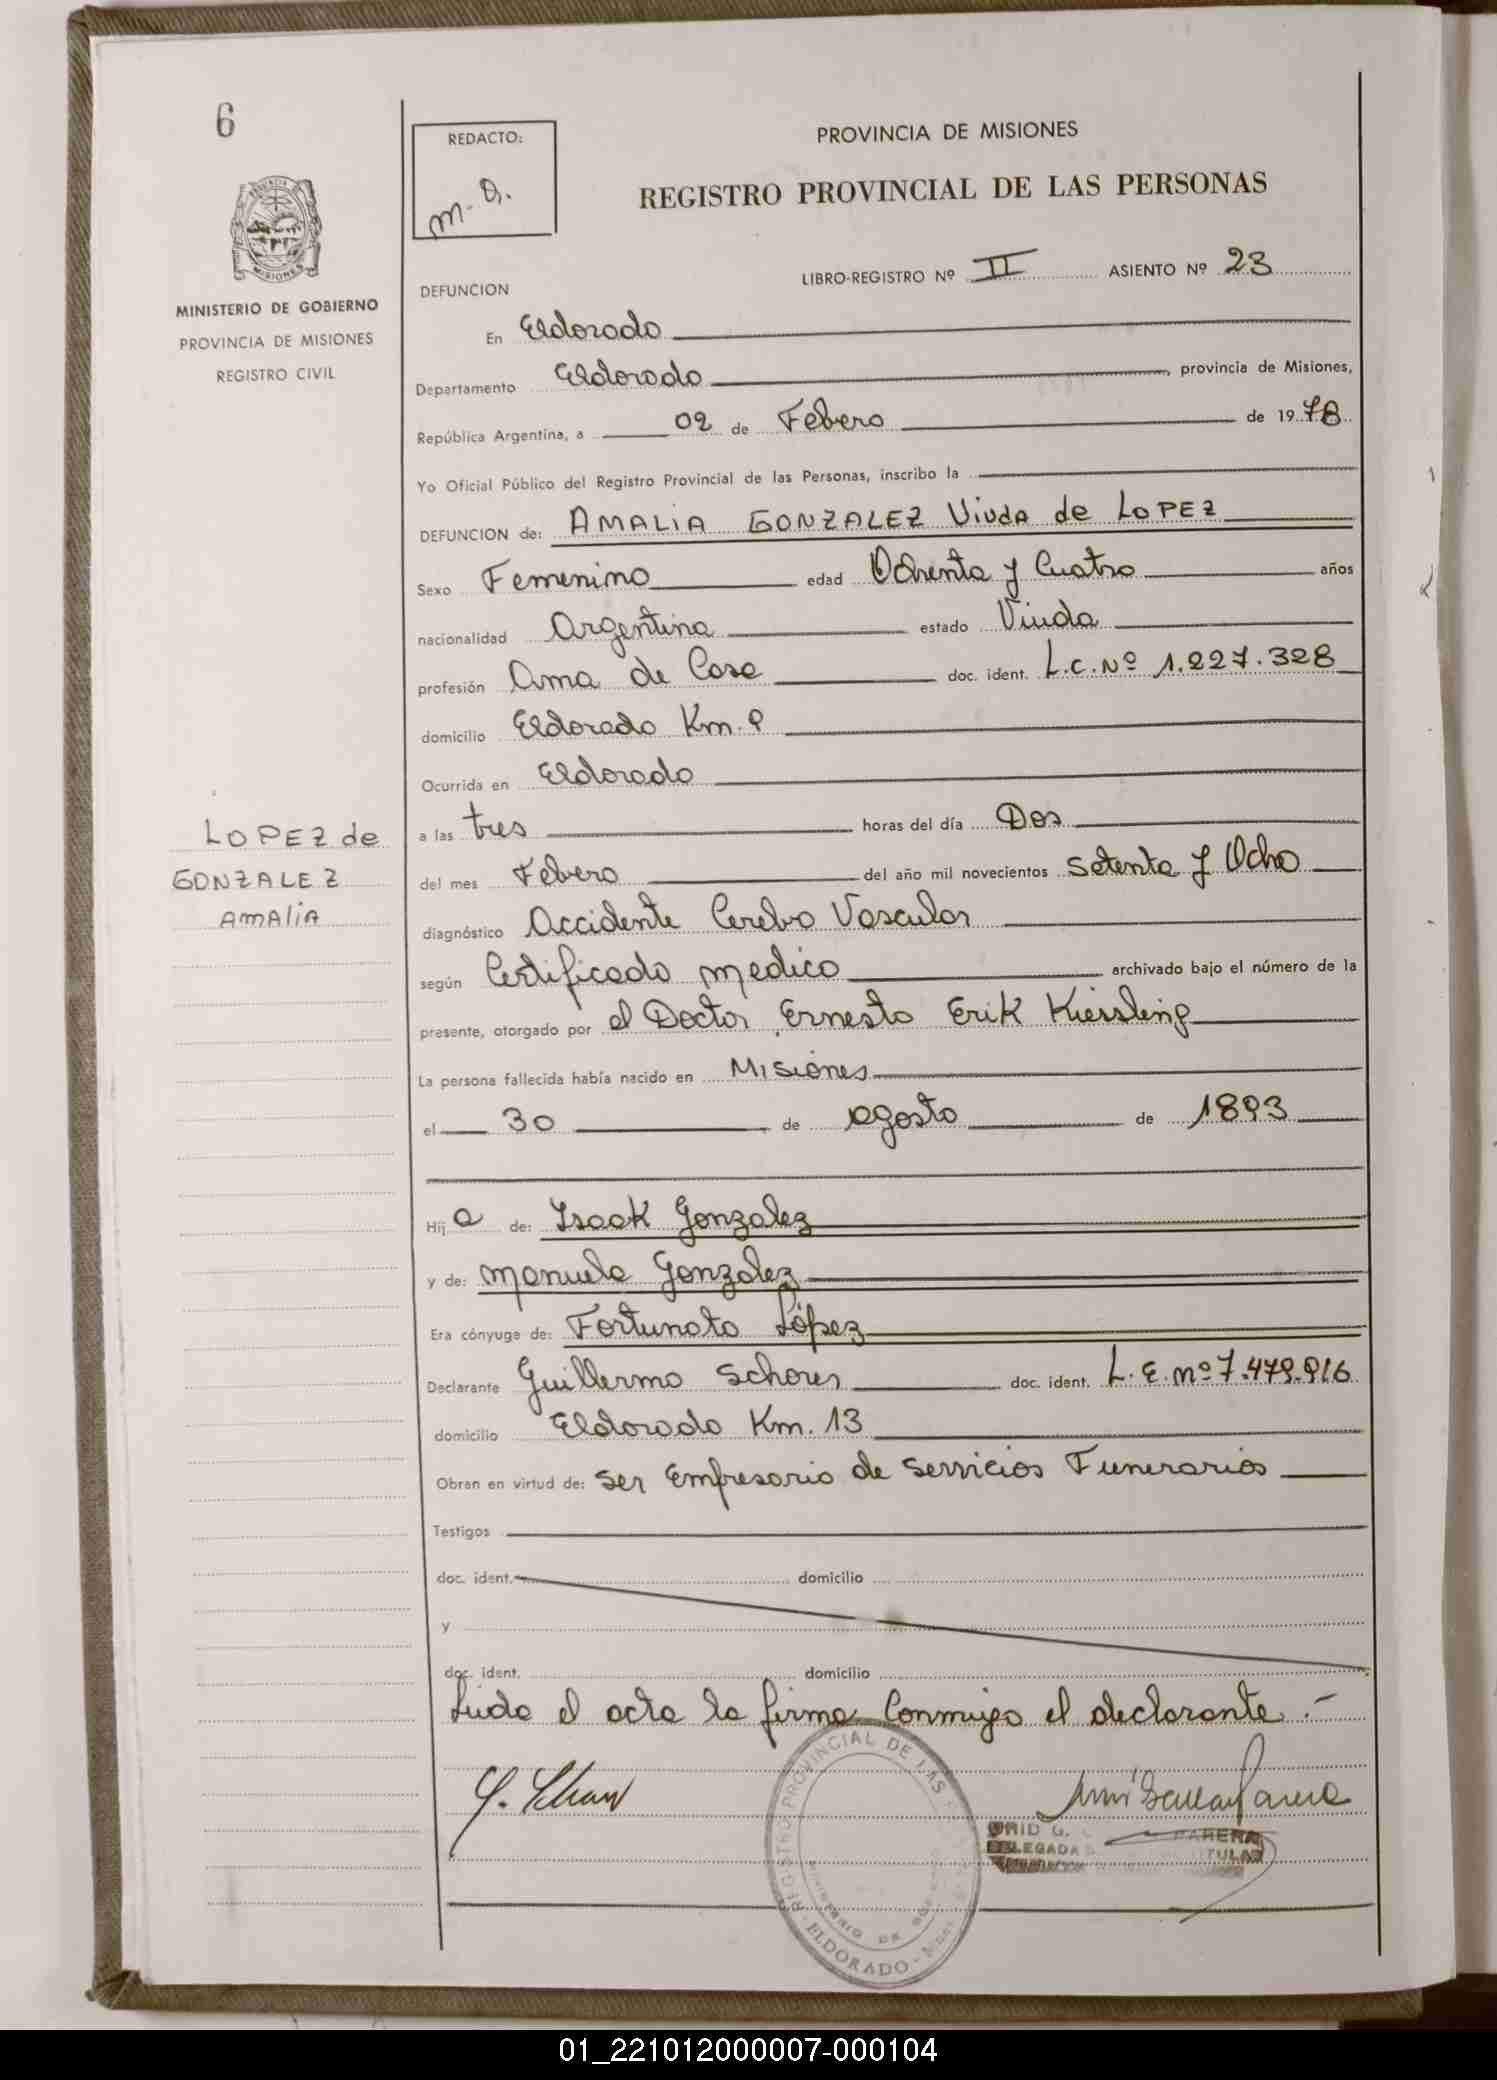 6
REDACTO:
m. D.
PROVINCIA DE MISIONES
REGISTRO PROVINCIAL DE LAS PERSONAS
MINISTERIO DE GOBIERNO
PROVINCIA DE MISIONES
REGISTRO CIVIL
DEFUNCION LIBRO-REGISTRO Nº II ASIENTO Nº 23
En Eldorado
Departamento Eldorado, provincia de Misiones,
República Argentina, a 02 de Febero de 1978
Yo Oficial Público del Registro Provincial de las Personas, inscribo la
DEFUNCION de: AMALIA GONZALEZ Viuda de LOPEZ
Sexo Femenino edad Ochenta y Cuatro años
nacionalidad Argentina estado Viuda
profesión Ama de Casa doc. ident. L.C. Nº 1.227.328
domicilio Eldorado Km. 9
Ocurrida en Eldorado
LOPEZ de
GONZALEZ
AMALIA
a las tres horas del día Dos
del mes Febero del año mil novecientos Setenta y Ocho
diagnóstico Accidente Cerebro Vascular
según Certificado medico archivado bajo el número de la
presente, otorgado por el Doctor Ernesto Erik Kiessling
La persona fallecida había nacido en Misiones
el 30 de agosto de 1893
Hij a de: Isaak Gonzalez
y de: Manuela Gonzalez
Era cónyuge de: Fortunato López
Declarante Guillermo Schores doc. ident. L.E. nº 7.479.916
domicilio Eldorado Km. 13
Obran en virtud de: ser Empresario de Servicios Funerarios
Testigos
doc. ident. domicilio
y
doc. ident. domicilio
Leida el acta la firma Conmigo el declarante.-
REGISTRO PROVINCIAL DE LAS
MINISTERIO DE
ELDORADO
PARERA
DELEGADA TITULAR
01_221012000007-000104